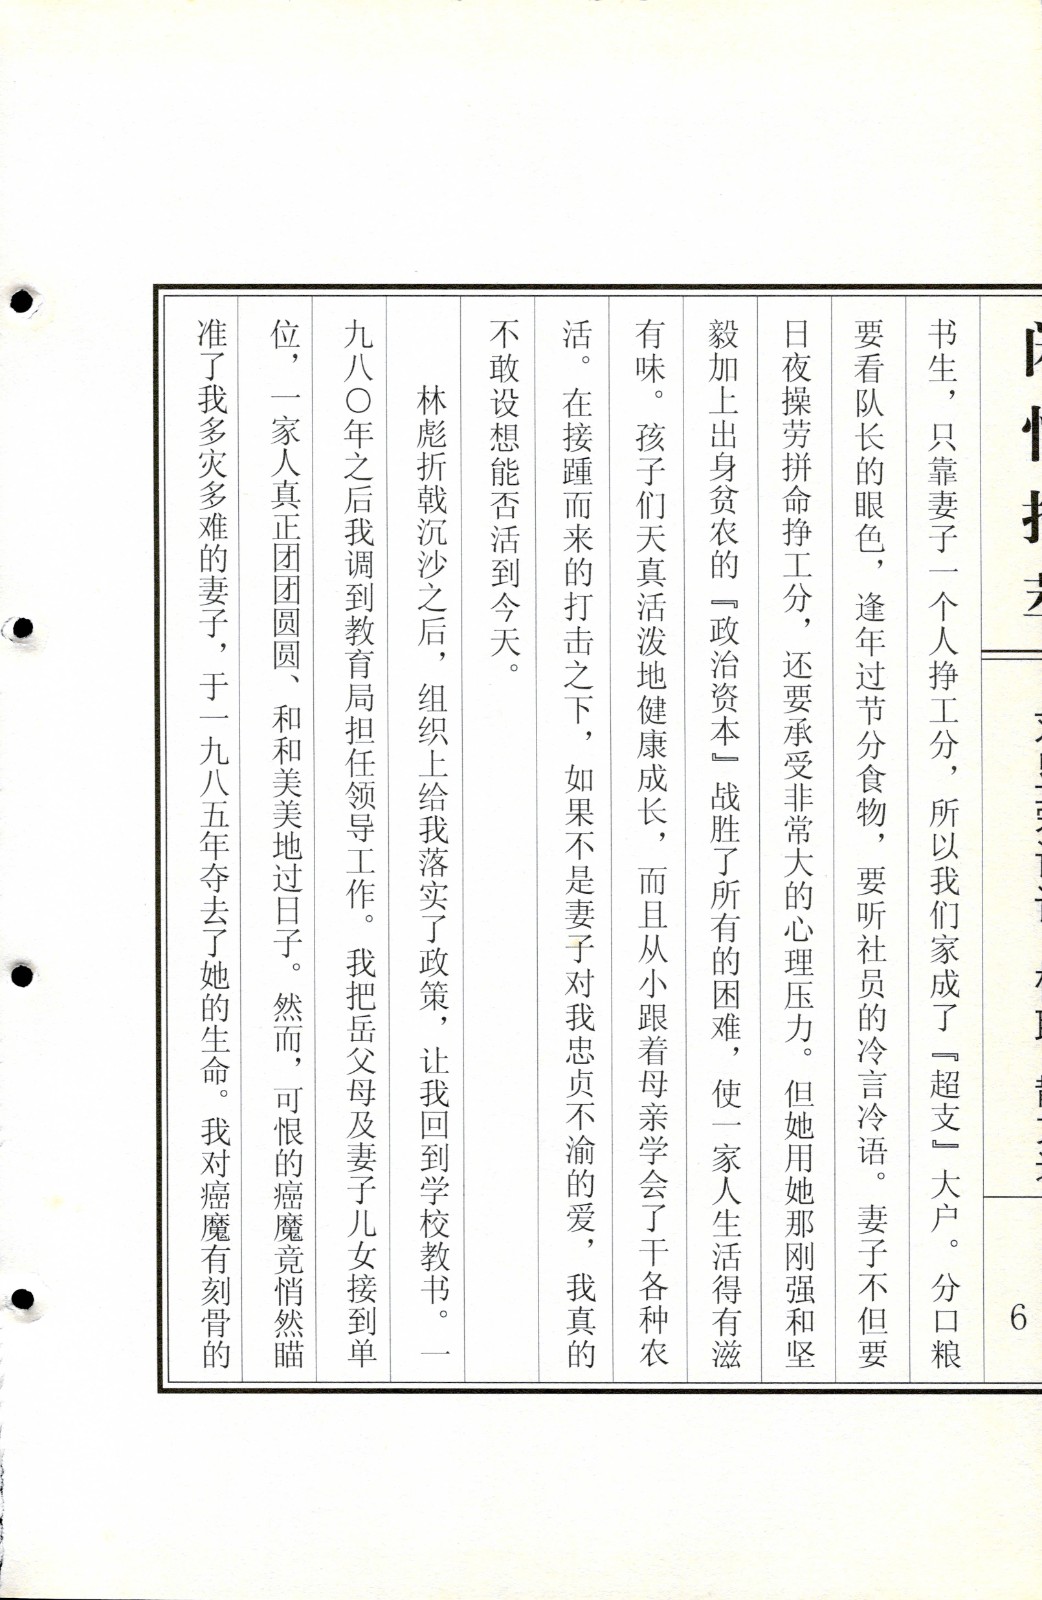 6
书生，只靠妻子一个人挣工分，所以我们家成了『超支』大户。分口粮
要看队长的眼色，逢年过节分食物，要听社员的冷言冷语。妻子不但要
日夜操劳拼命挣工分，还要承受非常大的心理压力。但她用她那刚强和坚
毅加上出身贫农的『政治资本』战胜了所有的困难，使一家人生活得有滋
有味。孩子们天真活泼地健康成长，而且从小跟着母亲学会了干各种农
活。在接踵而来的打击之下，如果不是妻子对我忠贞不渝的爱，我真的
不敢设想能否活到今天。
林彪折戟沉沙之后，组织上给我落实了政策，让我回到学校教书。一
九八〇年之后我调到教育局担任领导工作。我把岳父母及妻子儿女接到单
位，一家人真正团团圆圆、和和美美地过日子。然而，可恨的癌魔竟悄然瞄
准了我多灾多难的妻子，于一九八五年夺去了她的生命。我对癌魔有刻骨的